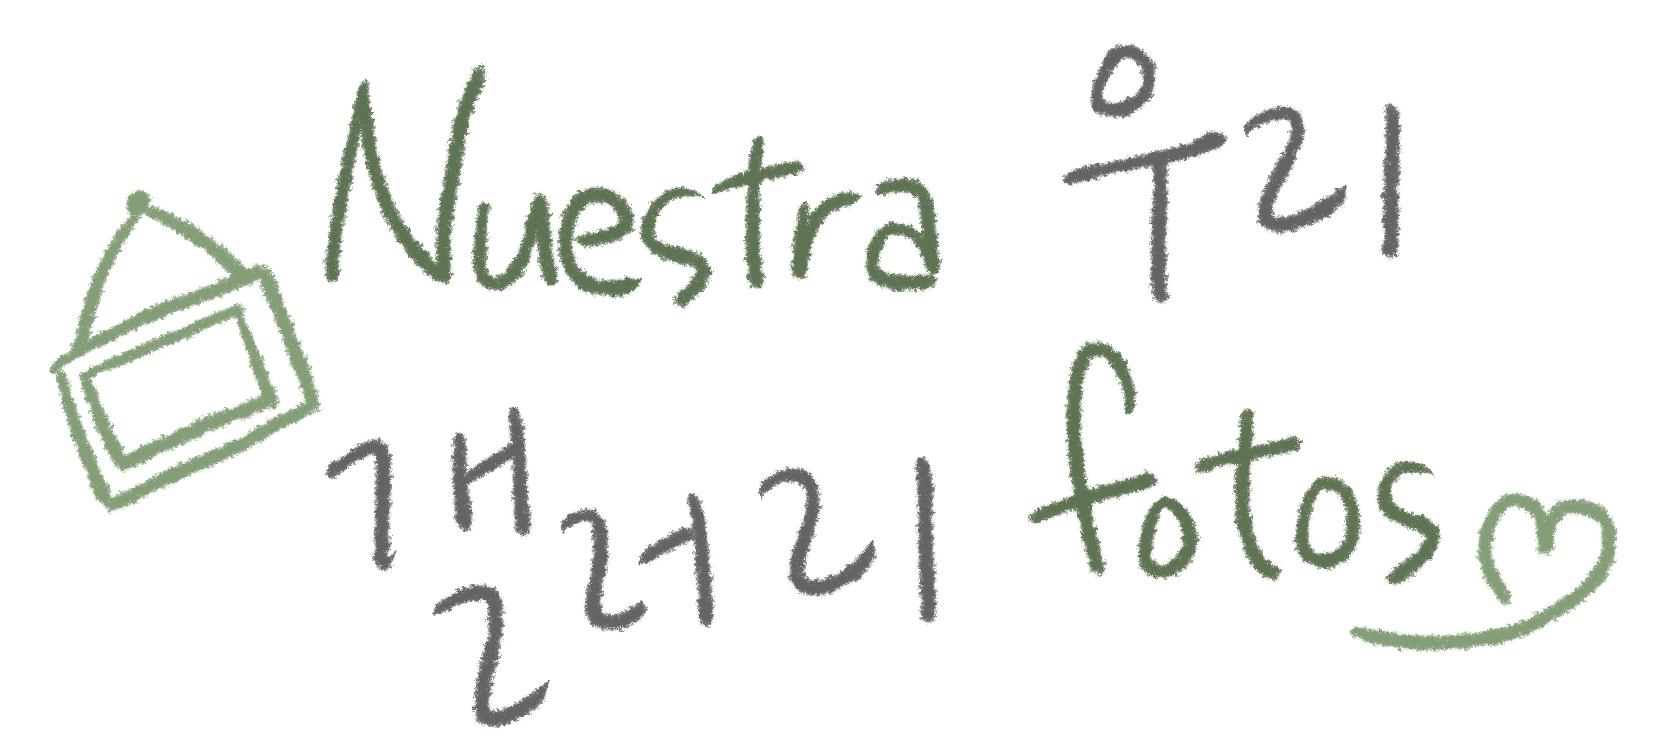 Nuestra 우리
갤러리 fotos